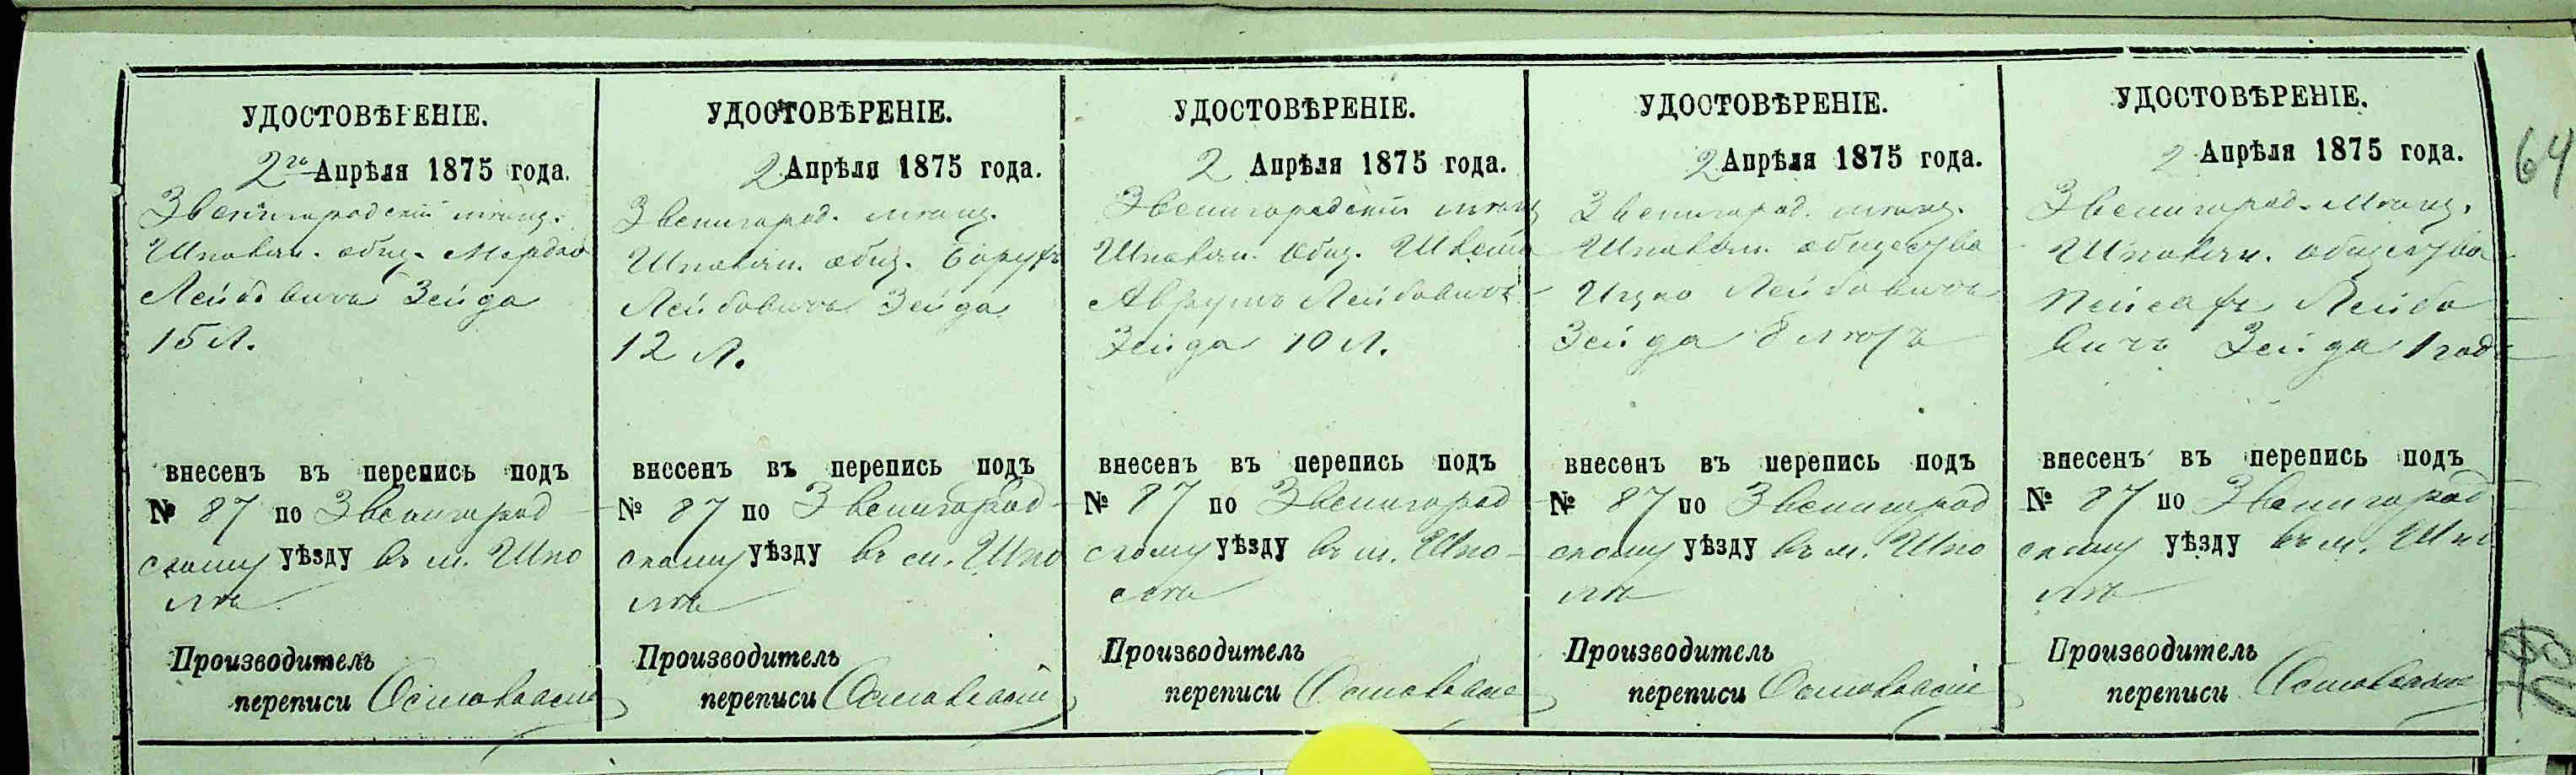 УДОСТОВѢРЕНІЕ.
2го Апрѣля 1875 года.
Звенигородскій мѣщ.
Шполян. общ. Мордко
Лейбовичъ Зейда
15 л.
внесенъ въ перепись подъ
№ 87 по Звенигород
скому уѣзду въ м. Шпо
лѣ
Производитель
переписи
УДОСТОВѢРЕНІЕ.
2 Апрѣля 1875 года.
Звенигород. мѣщ.
Шполян. общ. Борухъ
Лейбовичъ Зейда
12 л.
внесенъ въ перепись подъ
№ 87 по Звенигород-
скому уѣзду въ м. Шпо
лѣ
Производитель
переписи
УДОСТОВѢРЕНІЕ.
2 Апрѣля 1875 года.
Звенигородскій мѣщ
Шполян. общ.
Аврумъ Лейбовичъ
Зейда 10 л.
внесенъ въ перепись подъ
№ 87 по Звенигород
скому уѣзду въ м. Шпо-
лѣ
Производитель
переписи
УДОСТОВѢРЕНІЕ.
2 Апрѣля 1875 года.
Звенигород. мѣщ.
Шполян. общества
Ицко Лейбовичъ
Зейда 8 лѣтъ
внесенъ въ перепись подъ
№ 87 по Звенигород
скому уѣзду въ м. Шпо
лѣ
Производитель
переписи
УДОСТОВѢРЕНІЕ.
2 Апрѣля 1875 года.
Звенигород. мѣщ.
Шполян. общества
Пейсахъ Лейбо
вичъ Зейда 1 года
внесенъ въ перепись подъ
№ 87 по Звенигород
скому уѣзду въ м. Шпо
лѣ
Производитель
переписи
64